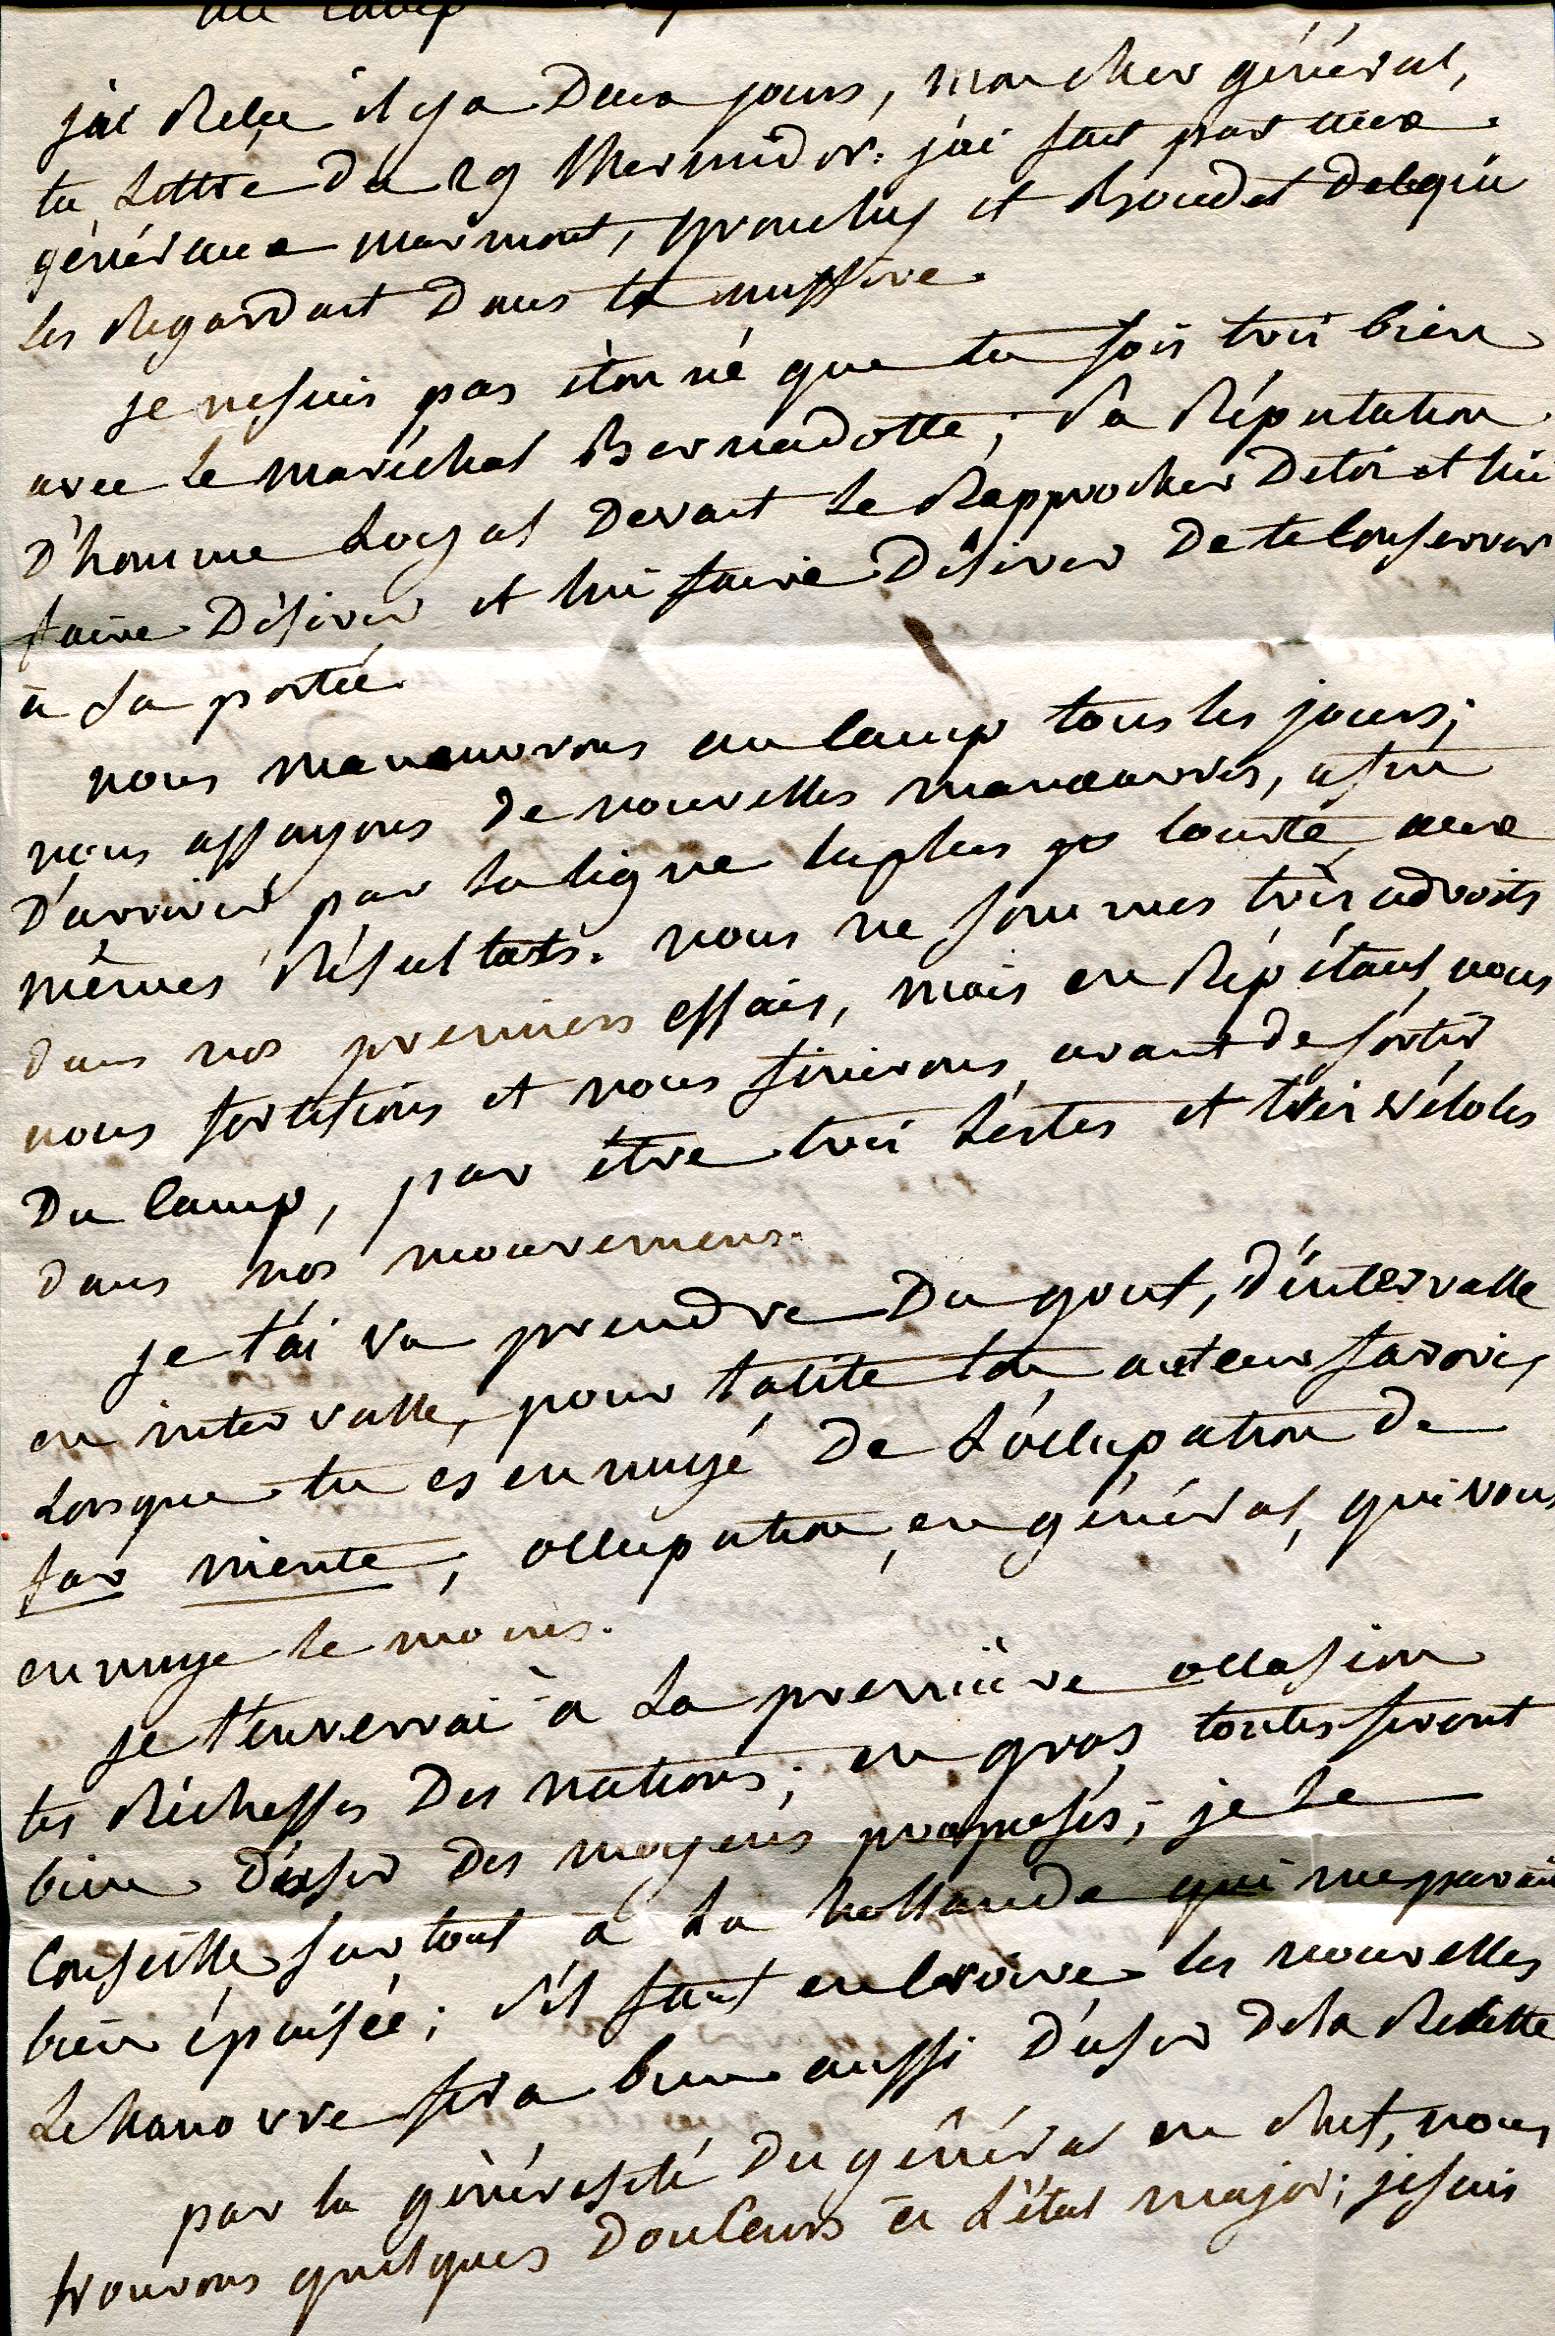 au camp
j'ai Reçu il y a Deux jours, mon cher général,
ta Lettre du 29 thermidor. j'ai fait part aux
généraux marmont, grouchy et Boudet de ce qui
les Regardait Dans ta missive.
je ne suis pas étonné que tu sois très bien
avec le maréchal Bernadotte; sa Réputation
D'homme Loyal devait le Rapprocher De toi et lui
faire Désirer et lui faire Désirer De te conserver
à sa portée.
nous manœuvrons au camp tous les jours;
nous assayons de nouvelles manœuvres, afin
D'arriver par la ligne la plus courte aux
mêmes Résultats. nous ne sommes très adroits
dans nos premiers essais, mais en Répétant, nous
nous fortifions et nous finirons, avant de sortir
Du camp, par être très Lestes et très véloces
dans nos mouvemens.
je t'ai vu prendre Du gout, d'intervalle
en intervalle, pour tacite ton auteur favori,
Lorsque tu és ennuyé De L'occupation de
far niente; occupation, en général, qui vous
ennuye le moins.
je t'enverrai à La première occasion
tes Richesses Des nations; en gros, toutes feront
bien d'user des moyens proposés; je le
conseille surtout à La hollande qui me parait
bien épuisée; s'il faut en croire les nouvelles
Le hanovre fera bien aussi D'user De la Recette
par la générosité Du général en chef, nous
trouvons quelques douceurs à L'état major; je suis